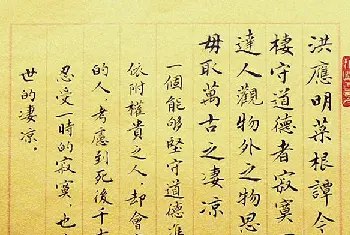 洪應明菜根譚今
棲守道德者寂寞一
達人觀物外之物思
毋取萬古之凄凉
一個能夠堅守道德準
依附權貴之人,却會
的人,考慮到死後千古
忍受一時的寂寞,也
世的凄凉。